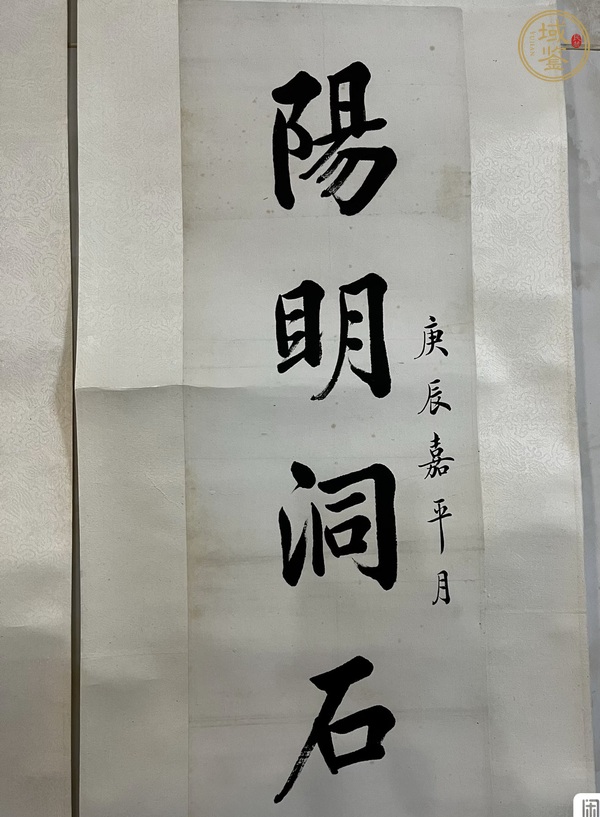 陽明洞石
庚辰嘉平月
域鉴
闲